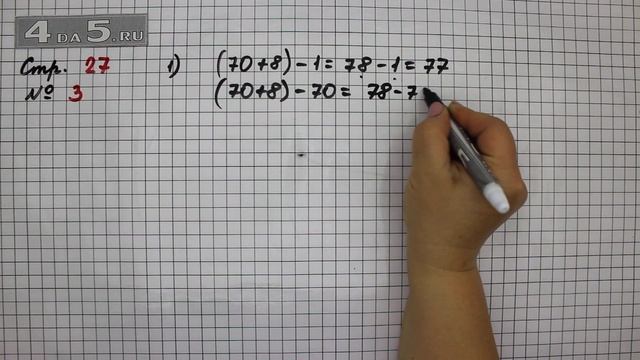 4 ДА 5.RU
Стр. 27 1) (70+8)-1= 78-1=77
№ 3 (70+8)-70= 78-7